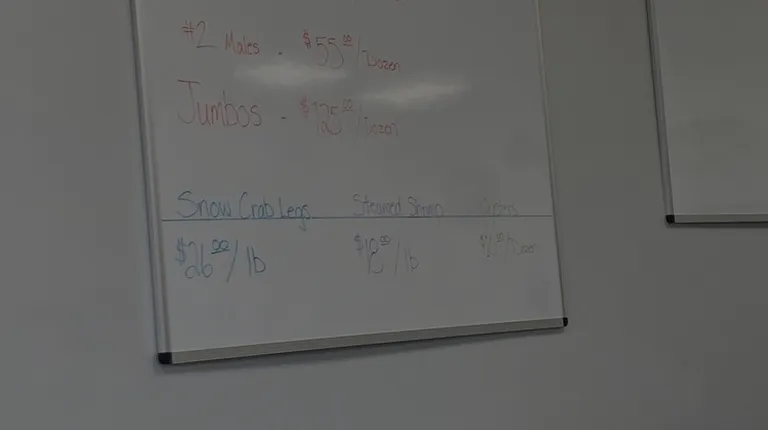 #2 Males - $55.00/Dozen
Jumbos - $125.00/Dozen
Snow Crab Legs Steamed Shrimp Oysters
$26.00/lb $18.00/lb /Dozen